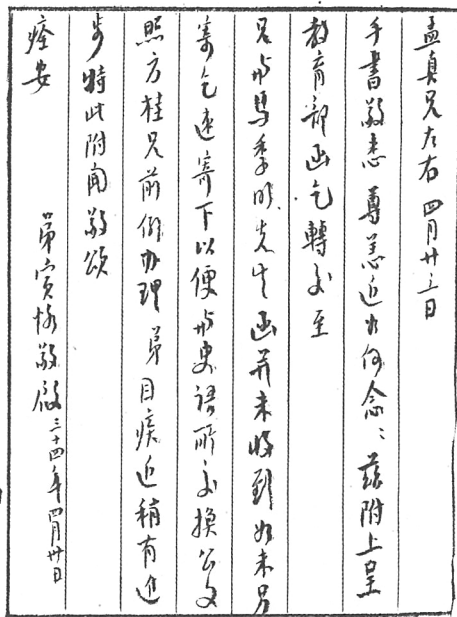 孟真兄左右 四月廿三日
手書敬悉 尊恙近如何念〻 茲附上呈
教育部函乞轉交至
兄與馬季明先生函并未收到如未另
寄乞速寄下以便與史語所交換公文
照方桂兄前例办理 弟目疾近稍有進
步特此附聞敬頌
痊安
弟寅恪敬啟 三十四年四月卅日